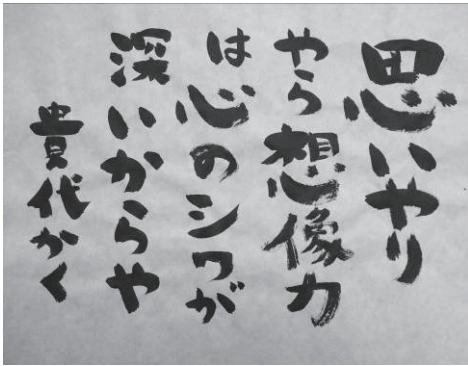 思いやり
やら想像力
は心のシワが
深いからや
貴代かく